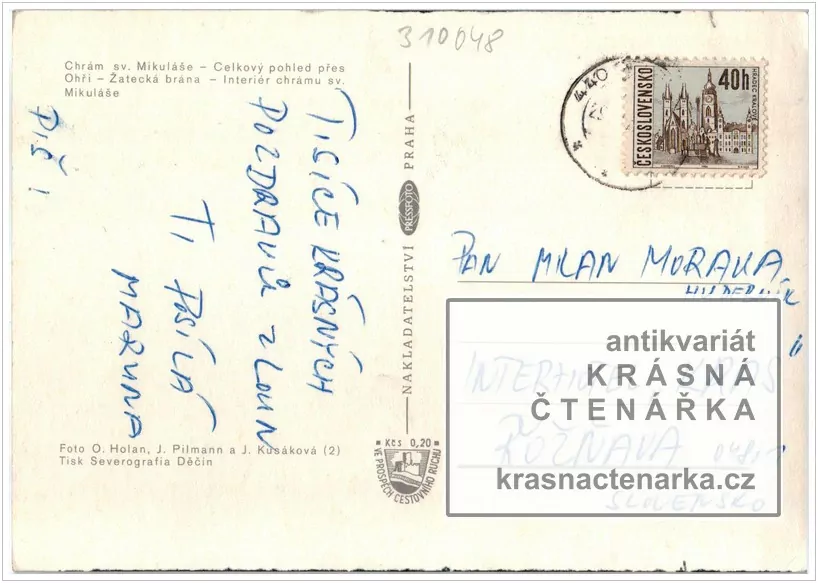 310048
Chrám sv. Mikuláše – Celkový pohled přes
Ohři – Žatecká brána – Interiér chrámu sv.
Mikuláše
PIŠ !
TISÍCE KRÁSNÝCH
POZDRAVŮ Z LOUN
TI POSÍLÁ
MARUNA
Foto O. Holan, J. Pilmann a J. Kusáková (2)
Tisk Severografia Děčín
NAKLADATELSTVÍ PRESSFOTO PRAHA
Kčs 0,20
VE PROSPĚCH CESTOVNÍHO RUCHU
440
ČESKOSLOVENSKO
40h
HRADEC KRÁLOVÉ
PAN MILAN MORAVA
HUDEBNÍK
INTERHOTEL KRAS
ROŽŇAVA
SLOVENSKO
antikvariát
KRÁSNÁ
ČTENÁŘKA
krasnactenarka.cz